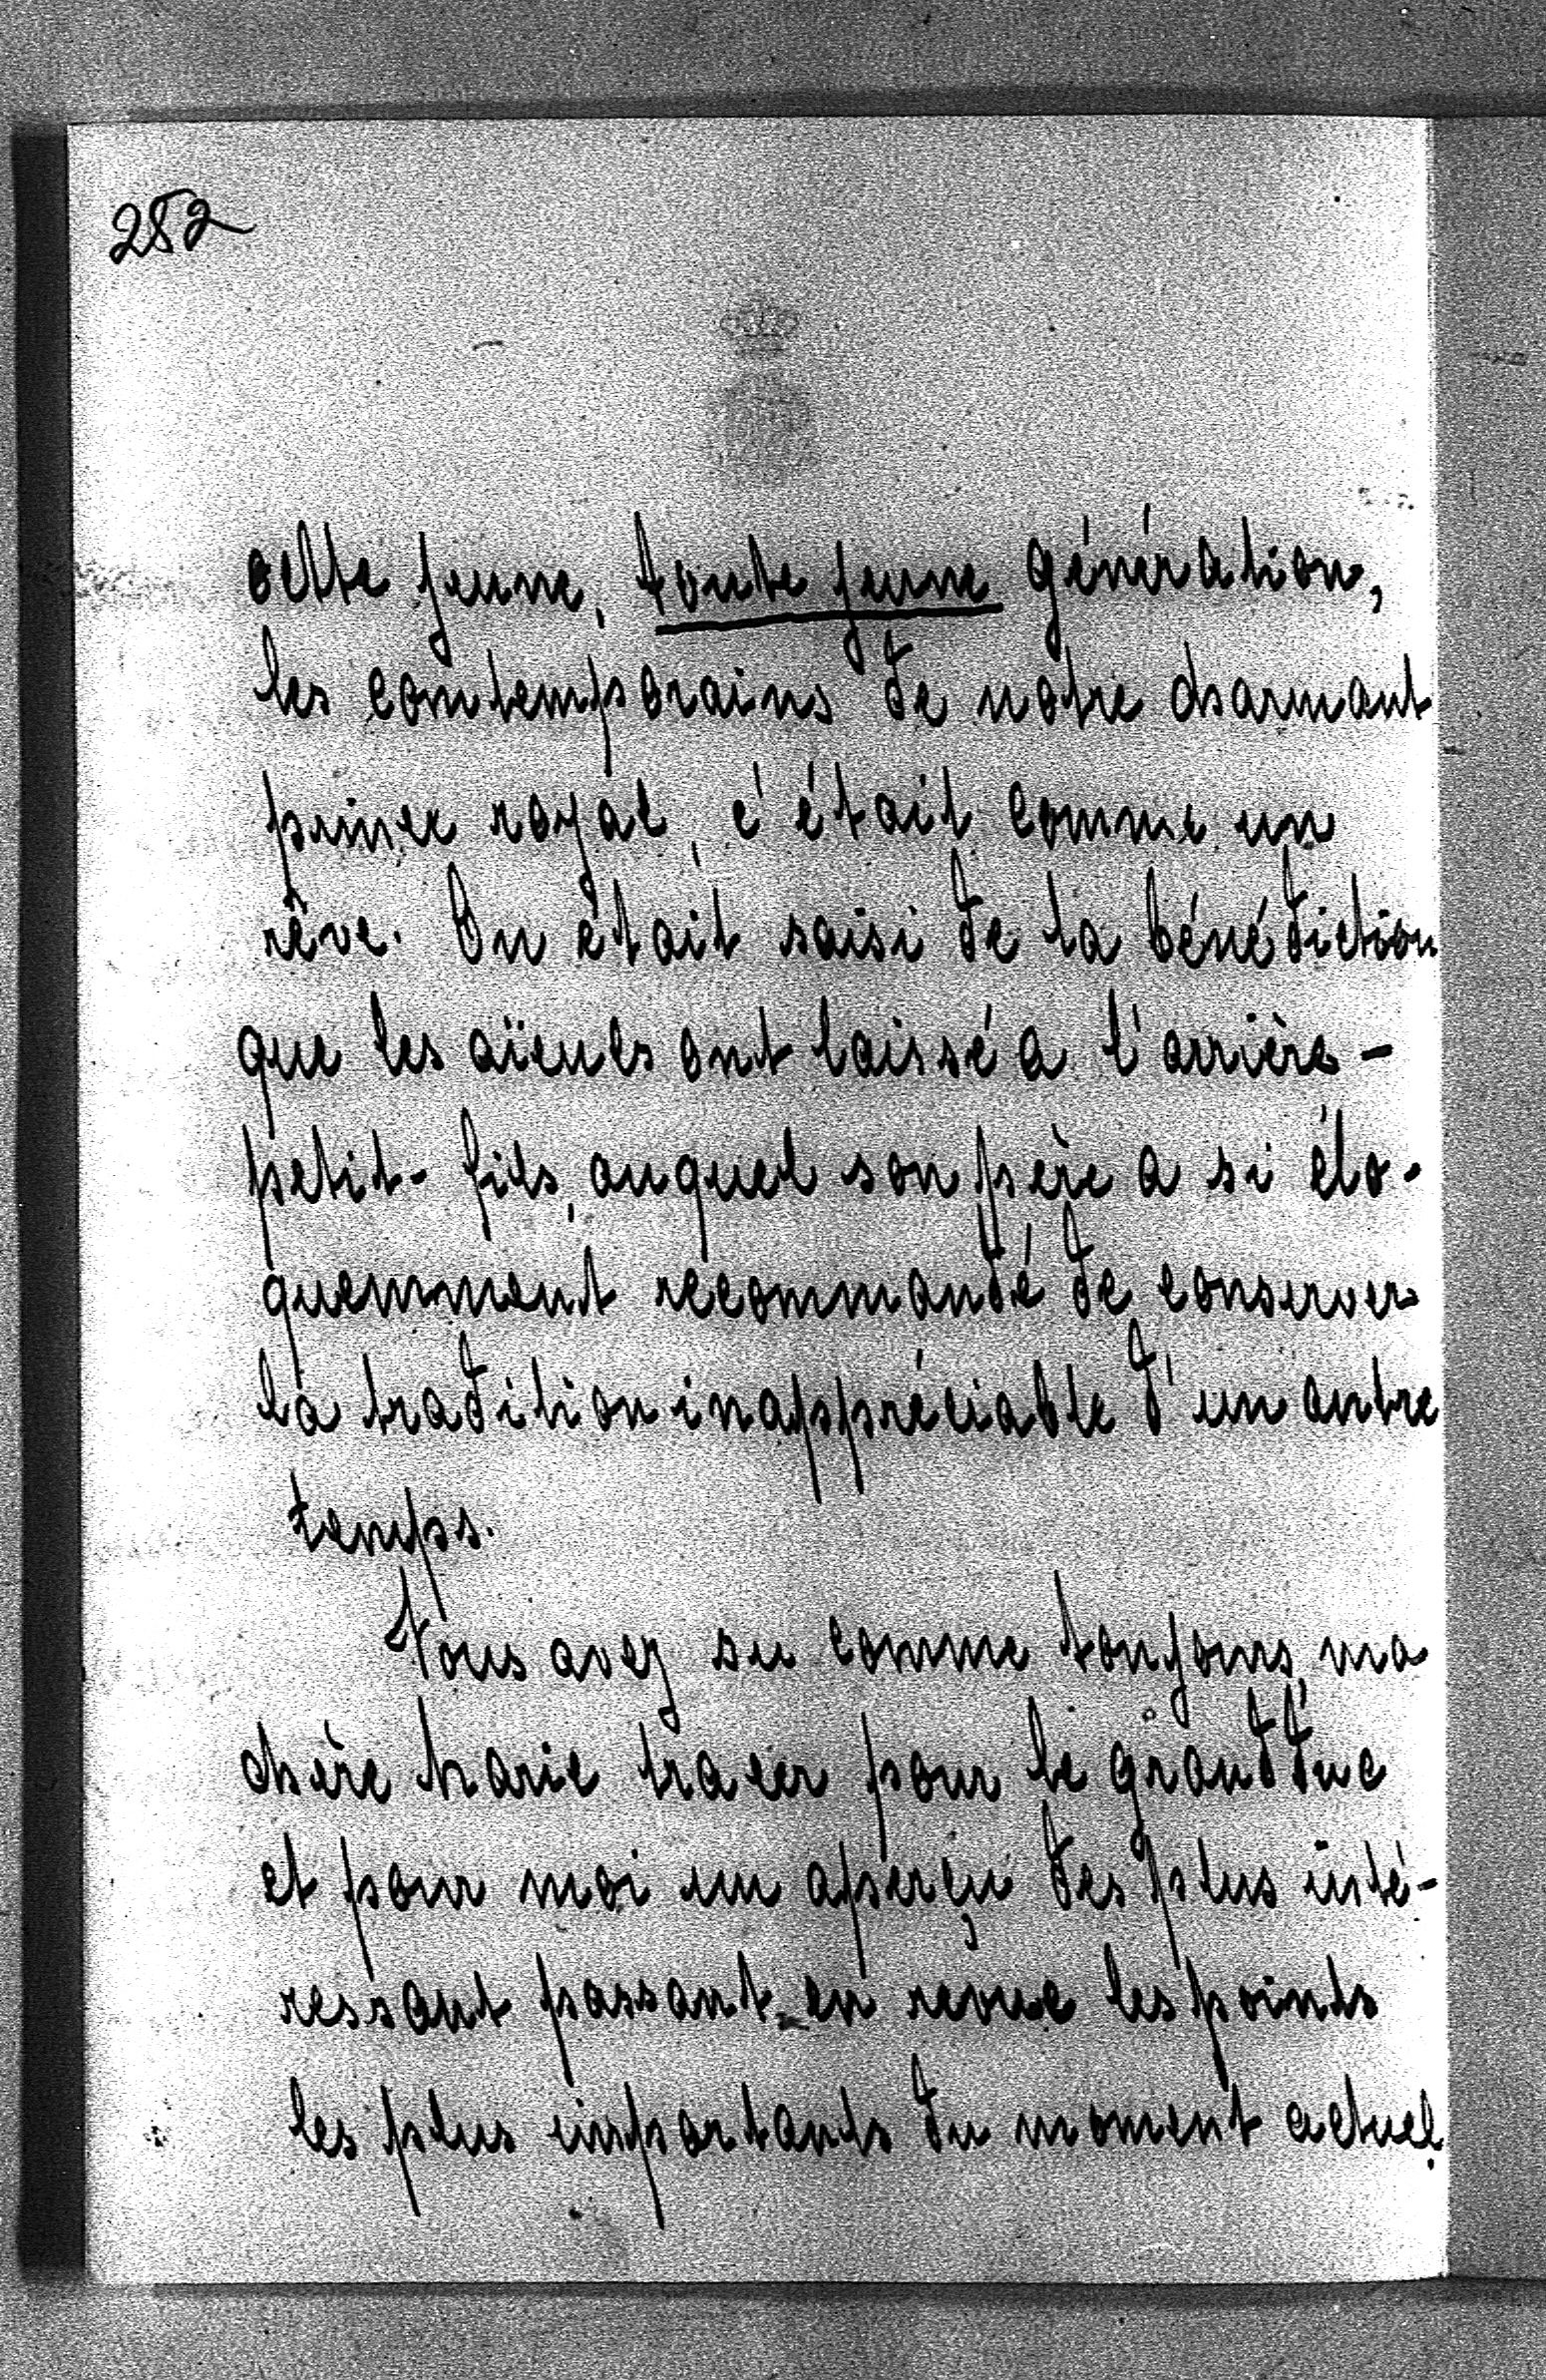 252
cette jeune, toute jeune génération,
les contemporains de notre charmant
prince royal, c'était comme un
rêve. On était saisi de la bénédiction
que les aïeuls ont laissé a l'arrière-
petit-fils, auquel son père a si élo-
quemment recommandé de conserver
la tradition inappréciable d'un autre
temps.
Vous avez su comme toujours, ma
chère Marie tracer pour le grand'duc
et pour moi un aperçu des plus inté-
ressant passant en revue les points
les plus importants du moment actuel.